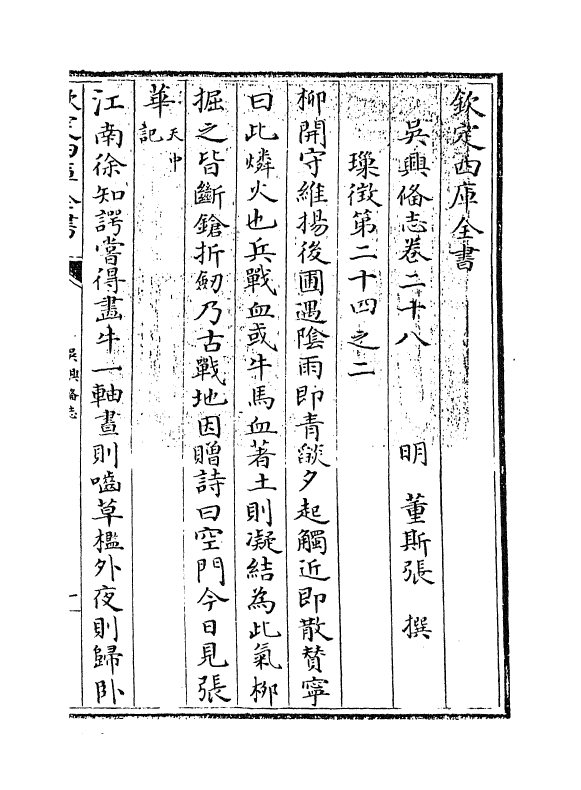 欽定四庫全書
吳興備志卷二十八　明　董斯張　撰
璅徴第二十四之二
柳開守維揚後圃遇隂雨即青燄夕起觸近即散贊寧
曰此燐火也兵戰血或牛馬血著土則凝結為此氣柳
掘之皆斷鎗折劒乃古戰地因贈詩曰空門今日見張
華天中記
江南徐知諤嘗得畫牛一軸晝則囓草欄外夜則歸卧
欽定四庫全書
吳興備志
一